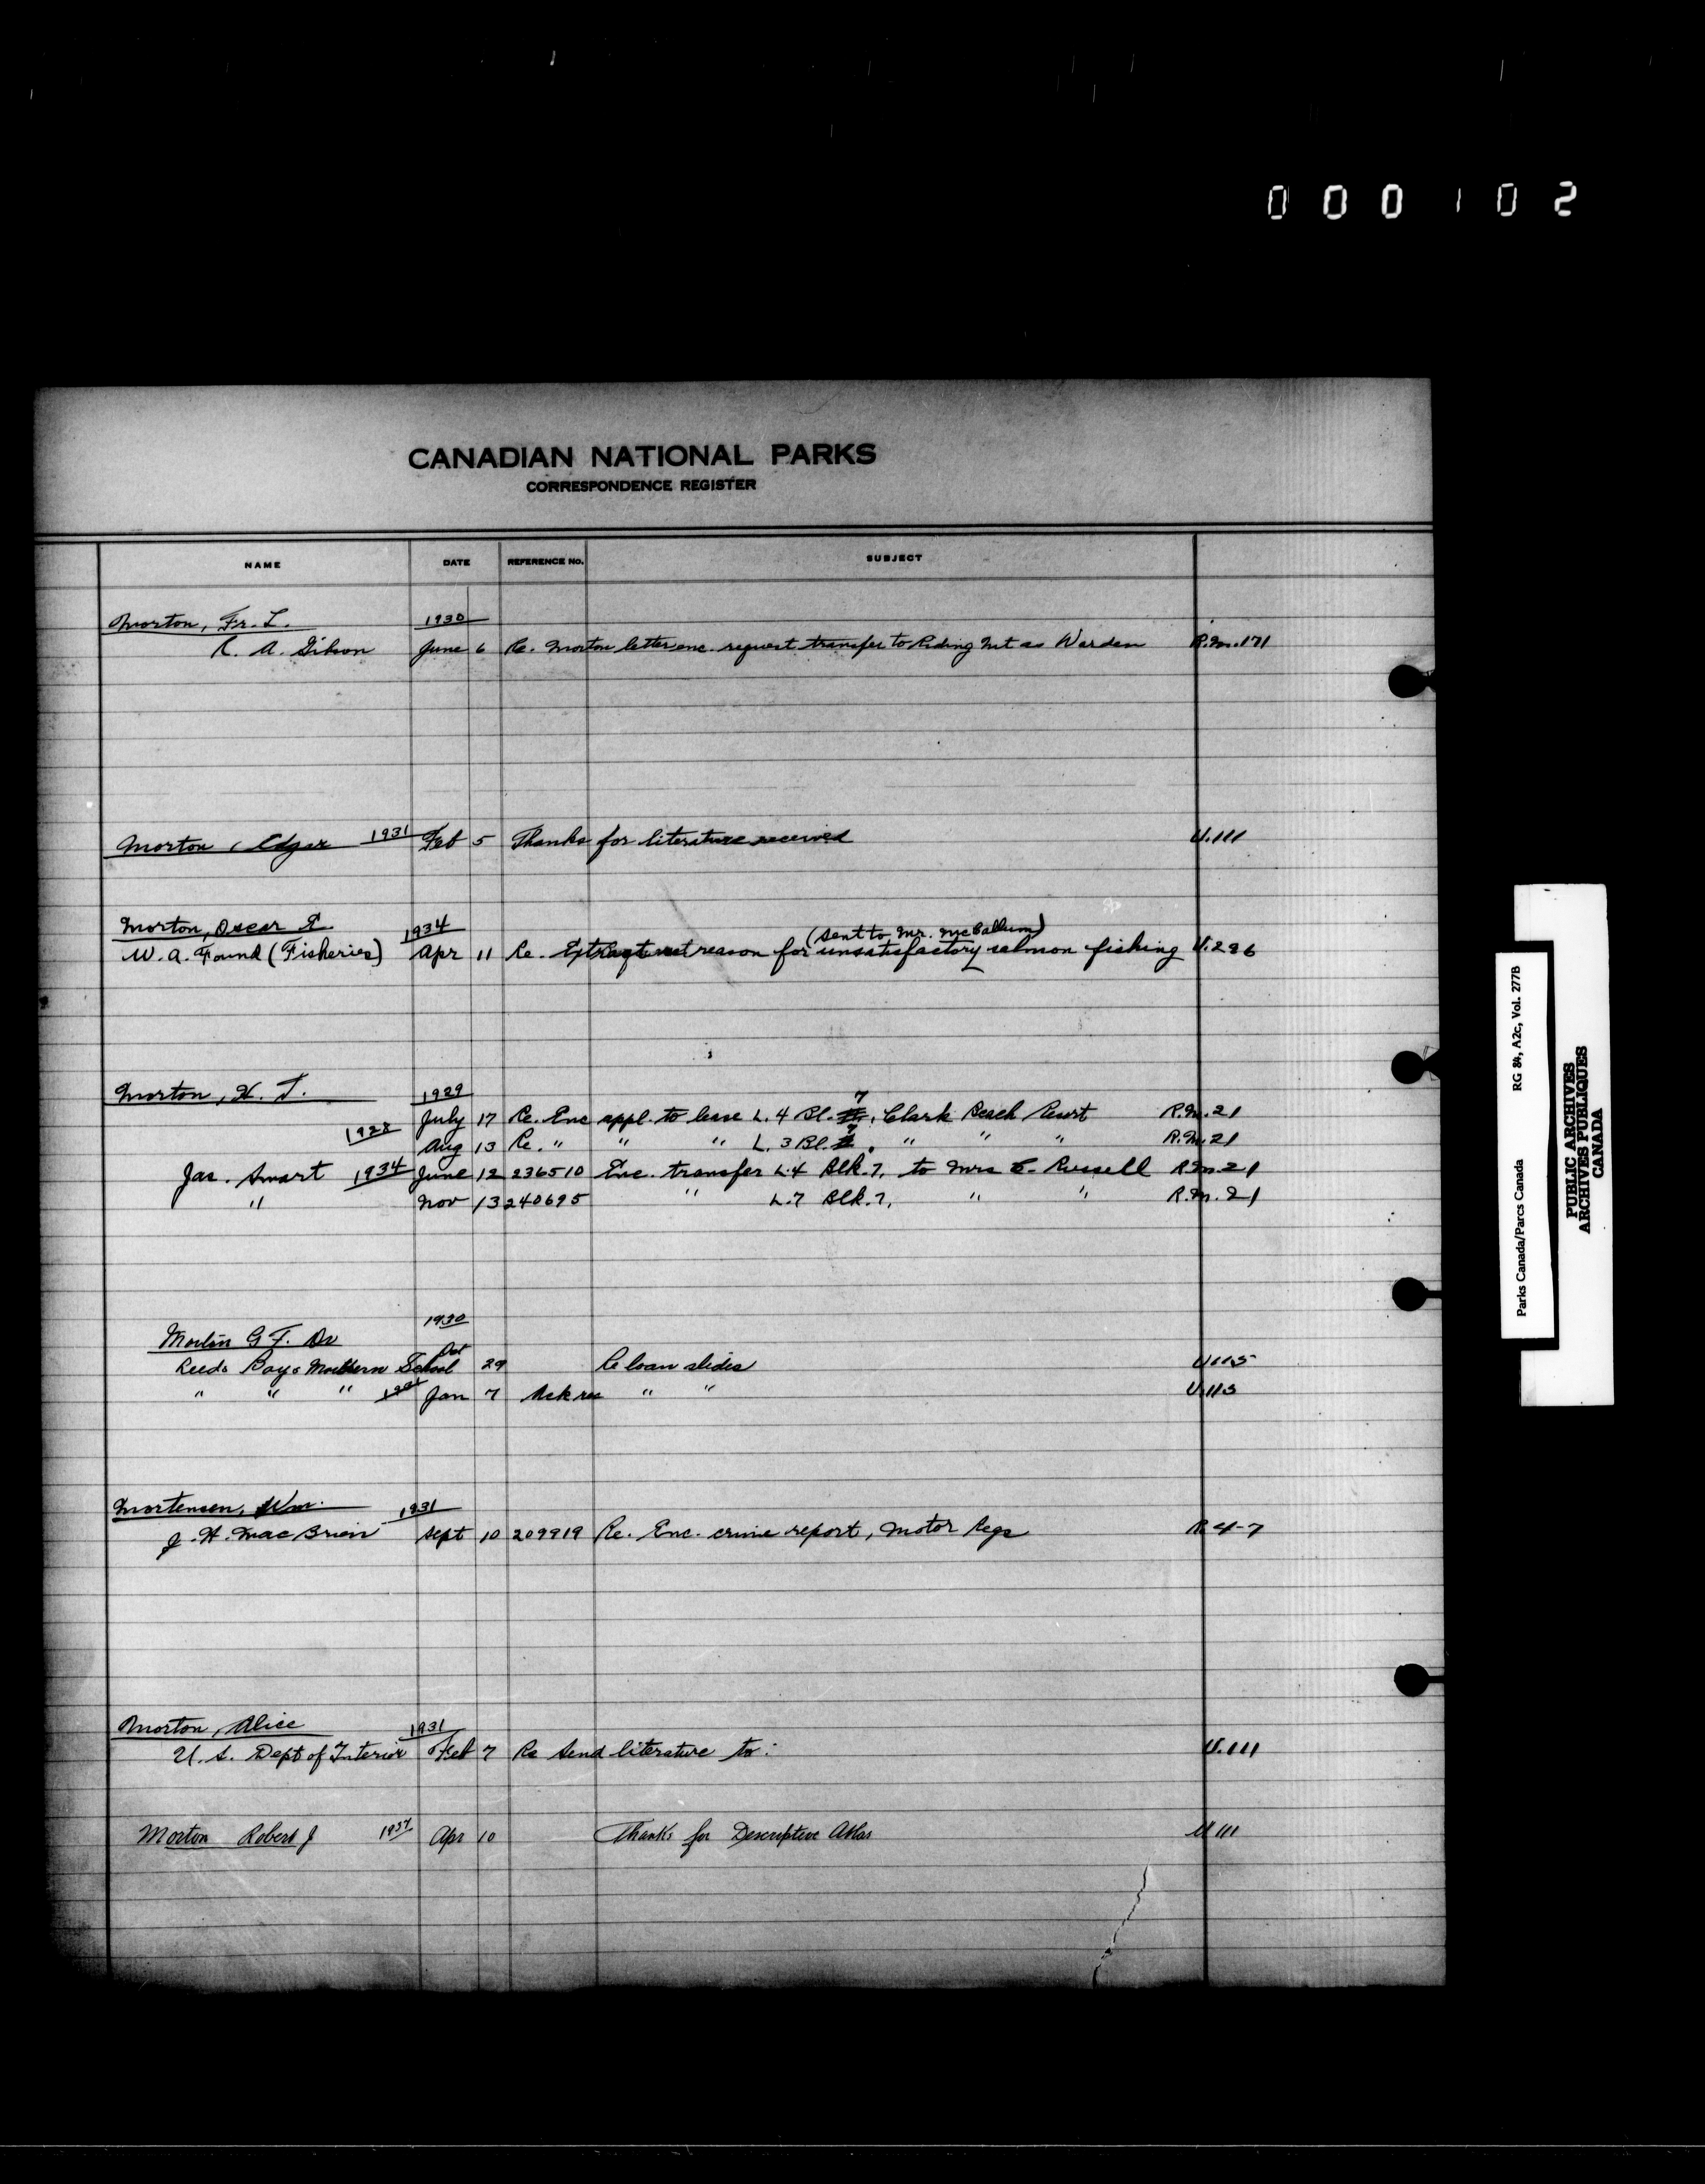 000102
CANADIAN NATIONAL PARKS
CORRESPONDENCE REGISTER
NAME DATE REFERENCE No. SUBJECT
Morton, Fr. L. 1930
R. A. Gibson June 6 Re. Morton letter enc. request transfer to Riding Mt as Warden R.M.171
Morton, Edgar 1931 Feb 5 Thanks for literature received U.111
Morton, Oscar E 1934 (sent to Mr. McCallum)
W. A. Found (Fisheries) Apr 11 Re. reason for unsatisfactory salmon fishing U.296
Morton, H. T. 1929 7
July 17 Re. Enc appl. to lease L. 4 Bl. , Clark Beach Resort R.M.21
1928 Aug 13 Re. " " " L. 3 Bl. 7, " " " R.M.21
Jas. Smart 1934 June 12 236510 Enc. transfer L.4 Blk. 7, to Mrs E. Russell R.M.21
" Nov 13 240695 " L.7 Blk. 7, " " R.M.21
1930
G. F. Dr
School Oct 29 Re loan slides U.115
" " " Jan 7 Ack rec " " U.115
Mortensen, Wm. 1931
J. H. MacBrien Sept 10 209919 Re. Enc. crime report, Motor Regs R.4-7
Morton, Alice 1931
U. S. Dept of Interior Feb 7 Re Send literature to: U.111
Morton Robert J Apr 10 Thanks for Descriptive Atlas U 111
Parks Canada/Parcs Canada RG 84, A2c, Vol. 277B
PUBLIC ARCHIVES
ARCHIVES PUBLIQUES
CANADA